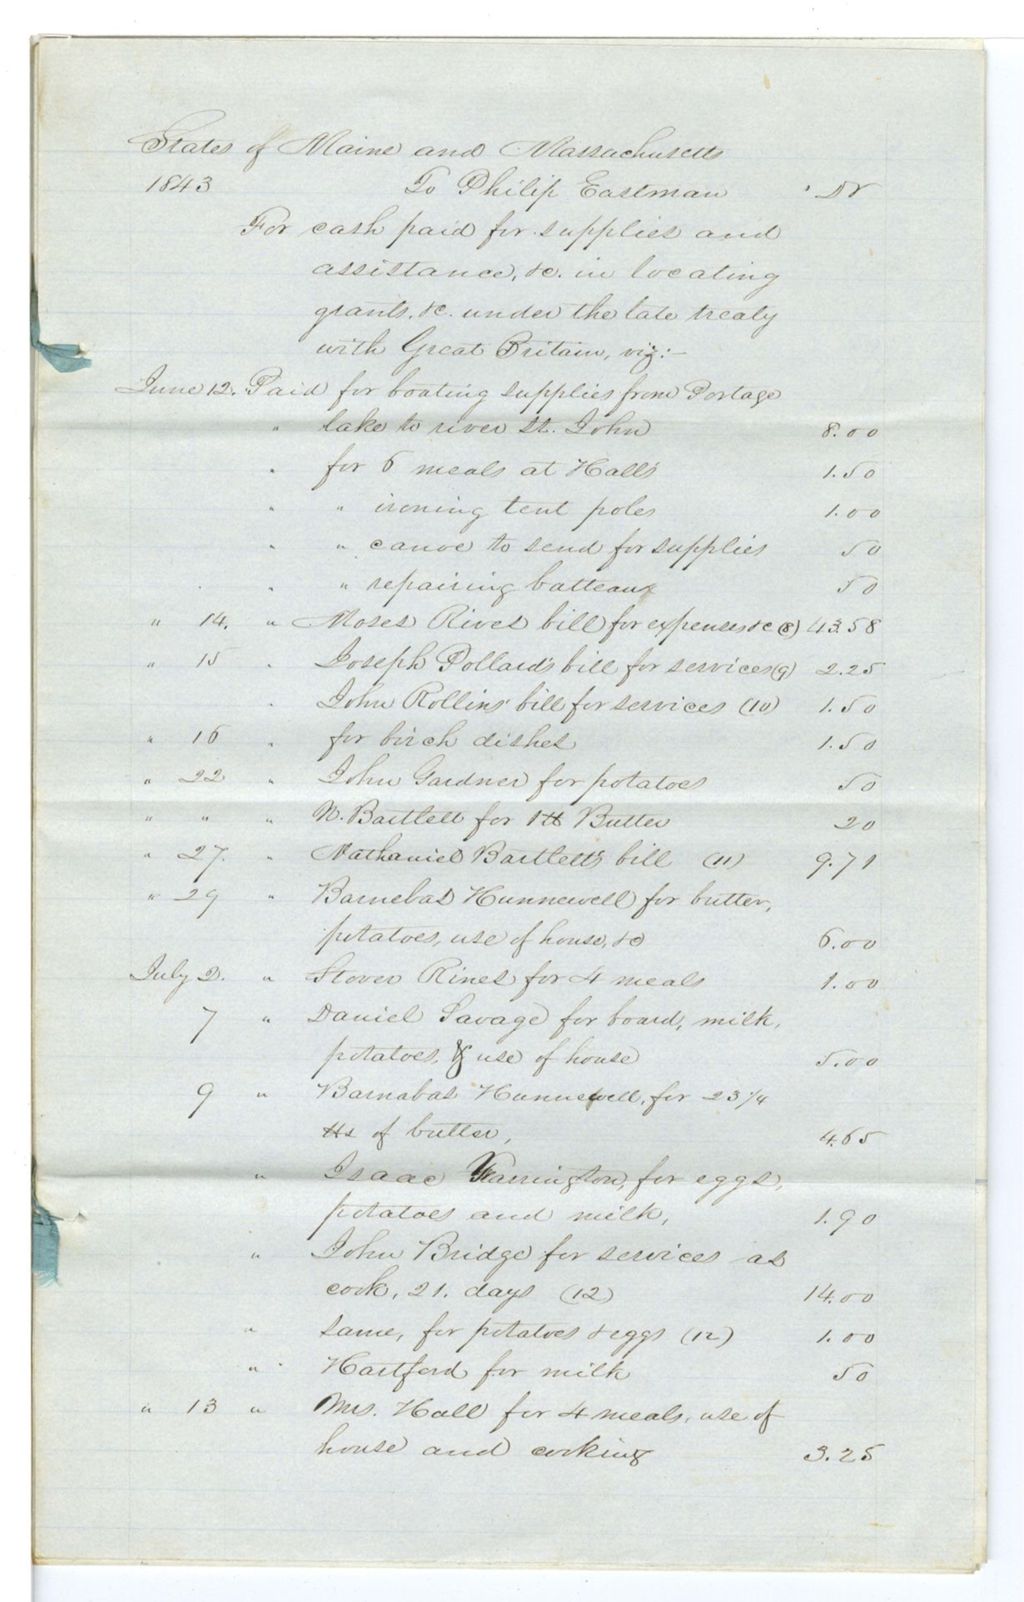 States of Maine and Massachusetts
1843 To Philip Eastman Dr
For cash paid for supplies and
assistance, &c. in locating
grants, &c. under the late treaty
with Great Britain, viz:-
June 12. Paid for boating supplies from Portage
" lake to river St. John 8.00
" for 6 meals at Hall's 1.50
" " ironing tent poles 1.00
" " canoe to send for supplies 50
" " repairing batteaux 50
" 14. " Moses Rines bill for expenses &c (8) 43.58
" 15 " Joseph Pollard's bill for services (9) 2.25
" John Rollins' bill for services (10) 1.50
" 16 " for birch dishes 1.50
" 22 " John Gardner for potatoes 50
" " " N. Bartlett for 1 lb Butter 20
" 27. " Nathaniel Bartlett's bill (11) 9.71
" 29 " Barnebas Hunnewell for butter,
potatoes, use of house, &c 6.00
July 2. " Stover Rines for 4 meals 1.00
7 " Daniel Savage for board, milk,
potatoes, & use of house 5.00
9 " Barnabas Hunnewell, for 23 1/4
lbs of butter, 4.65
" Isaac Farrington, for eggs,
potatoes and milk, 1.90
" John Bridge for services as
cook, 21. days (12) 14.00
" same, for potatoes & eggs (12) 1.00
" Hartford for milk 50
" 13 " Mrs. Hall for 4 meals, use of
house and cooking 3.25